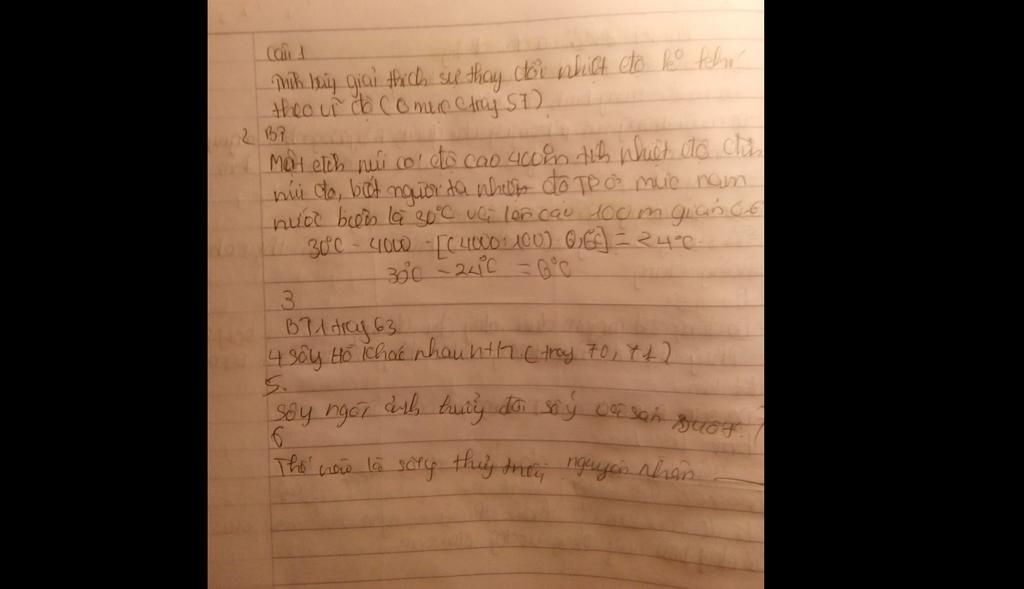 Câu 1
hãy giải thích sự thay đổi nhiệt độ k° khí
theo vĩ độ (ở mục c tray 57)
2 BT
Một đỉnh núi có độ cao 4000m tính nhiệt độ đỉnh
núi đó, biết người ta nhiệt độ TP ở mức nam
nước biển là 30°C và lên cao 100 m giản 0.6
30°C - 4000 - [(4000:100) 0,6°C] = 24°C.
30°C - 24°C = 6°C
3
BT 1 tray 63
4 Sôy Hồ khác nhau nth (tray 70, 71)
5.
Sôy ngòi ảnh đời sốy và sản xuất
6
Thế nào là sóng thủy triều, nguyên nhân